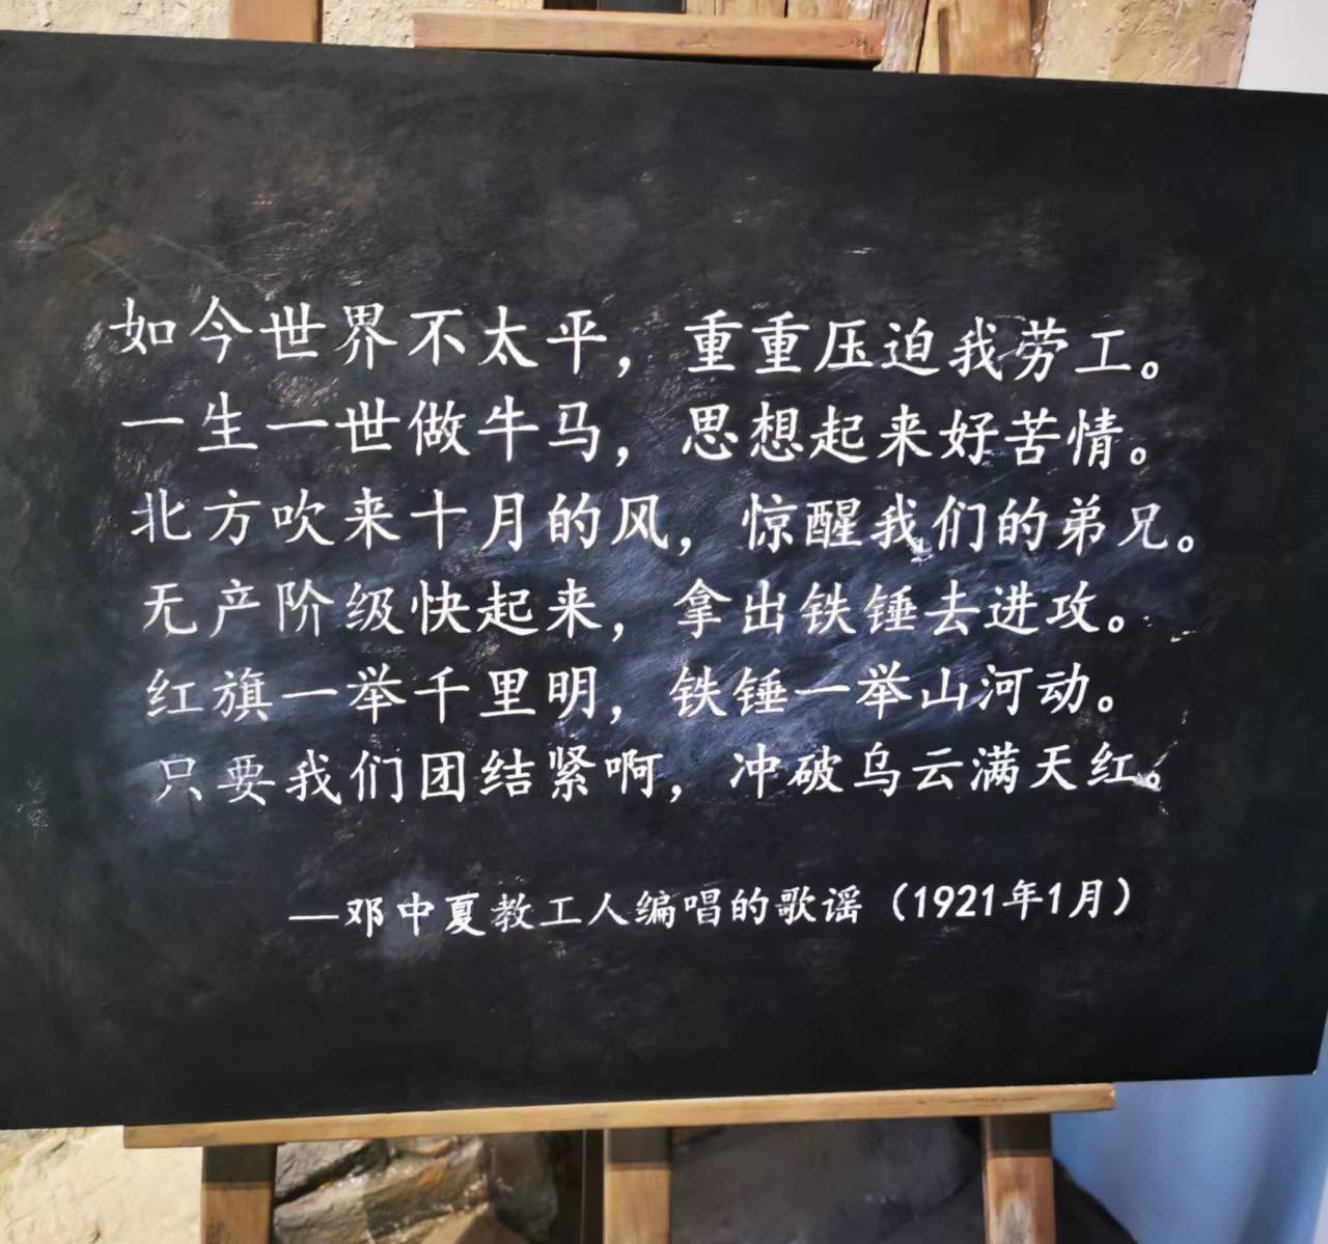 如今世界不太平，重重压迫我劳工。
一生一世做牛马，思想起来好苦情。
北方吹来十月的风，惊醒我们的弟兄。
无产阶级快起来，拿出铁锤去进攻。
红旗一举千里明，铁锤一举山河动。
只要我们团结紧啊，冲破乌云满天红。
—邓中夏教工人编唱的歌谣（1921年1月）